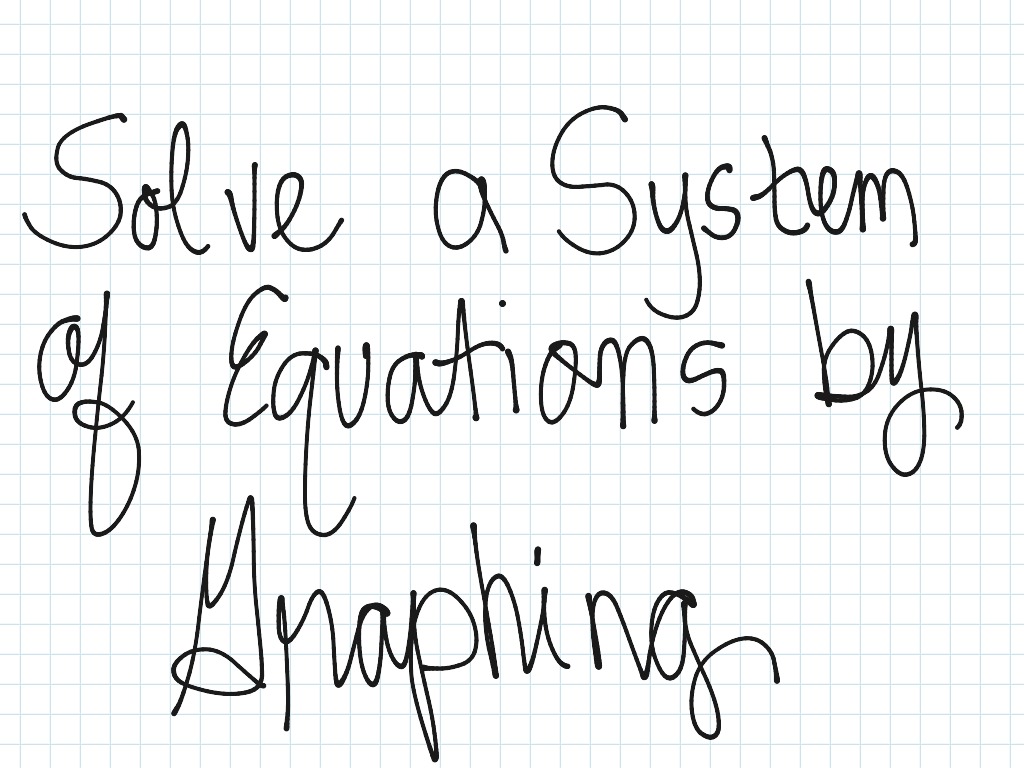 Solve a System
of Equations by
Graphing